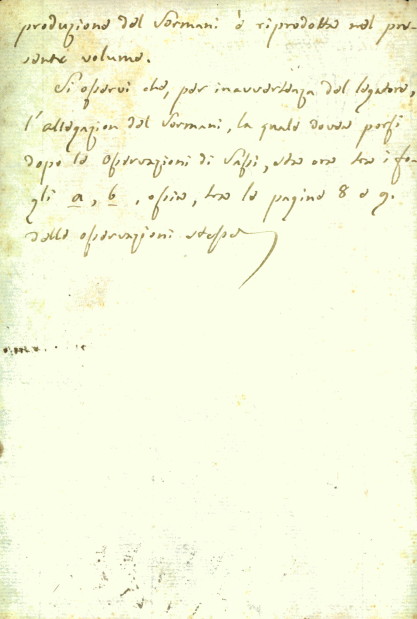 produzione del Sormani è riprodotta nel pre-
sente volume.
Si osservi che, per inavvertenza del legatore,
l'allegazion del Sormani, la quale dovea porsi
dopo le osservazioni di Sassi, sta ora tra i fo-
gli a, b, ossia, tra le pagine 8 e 9.
delle osservazioni stesse